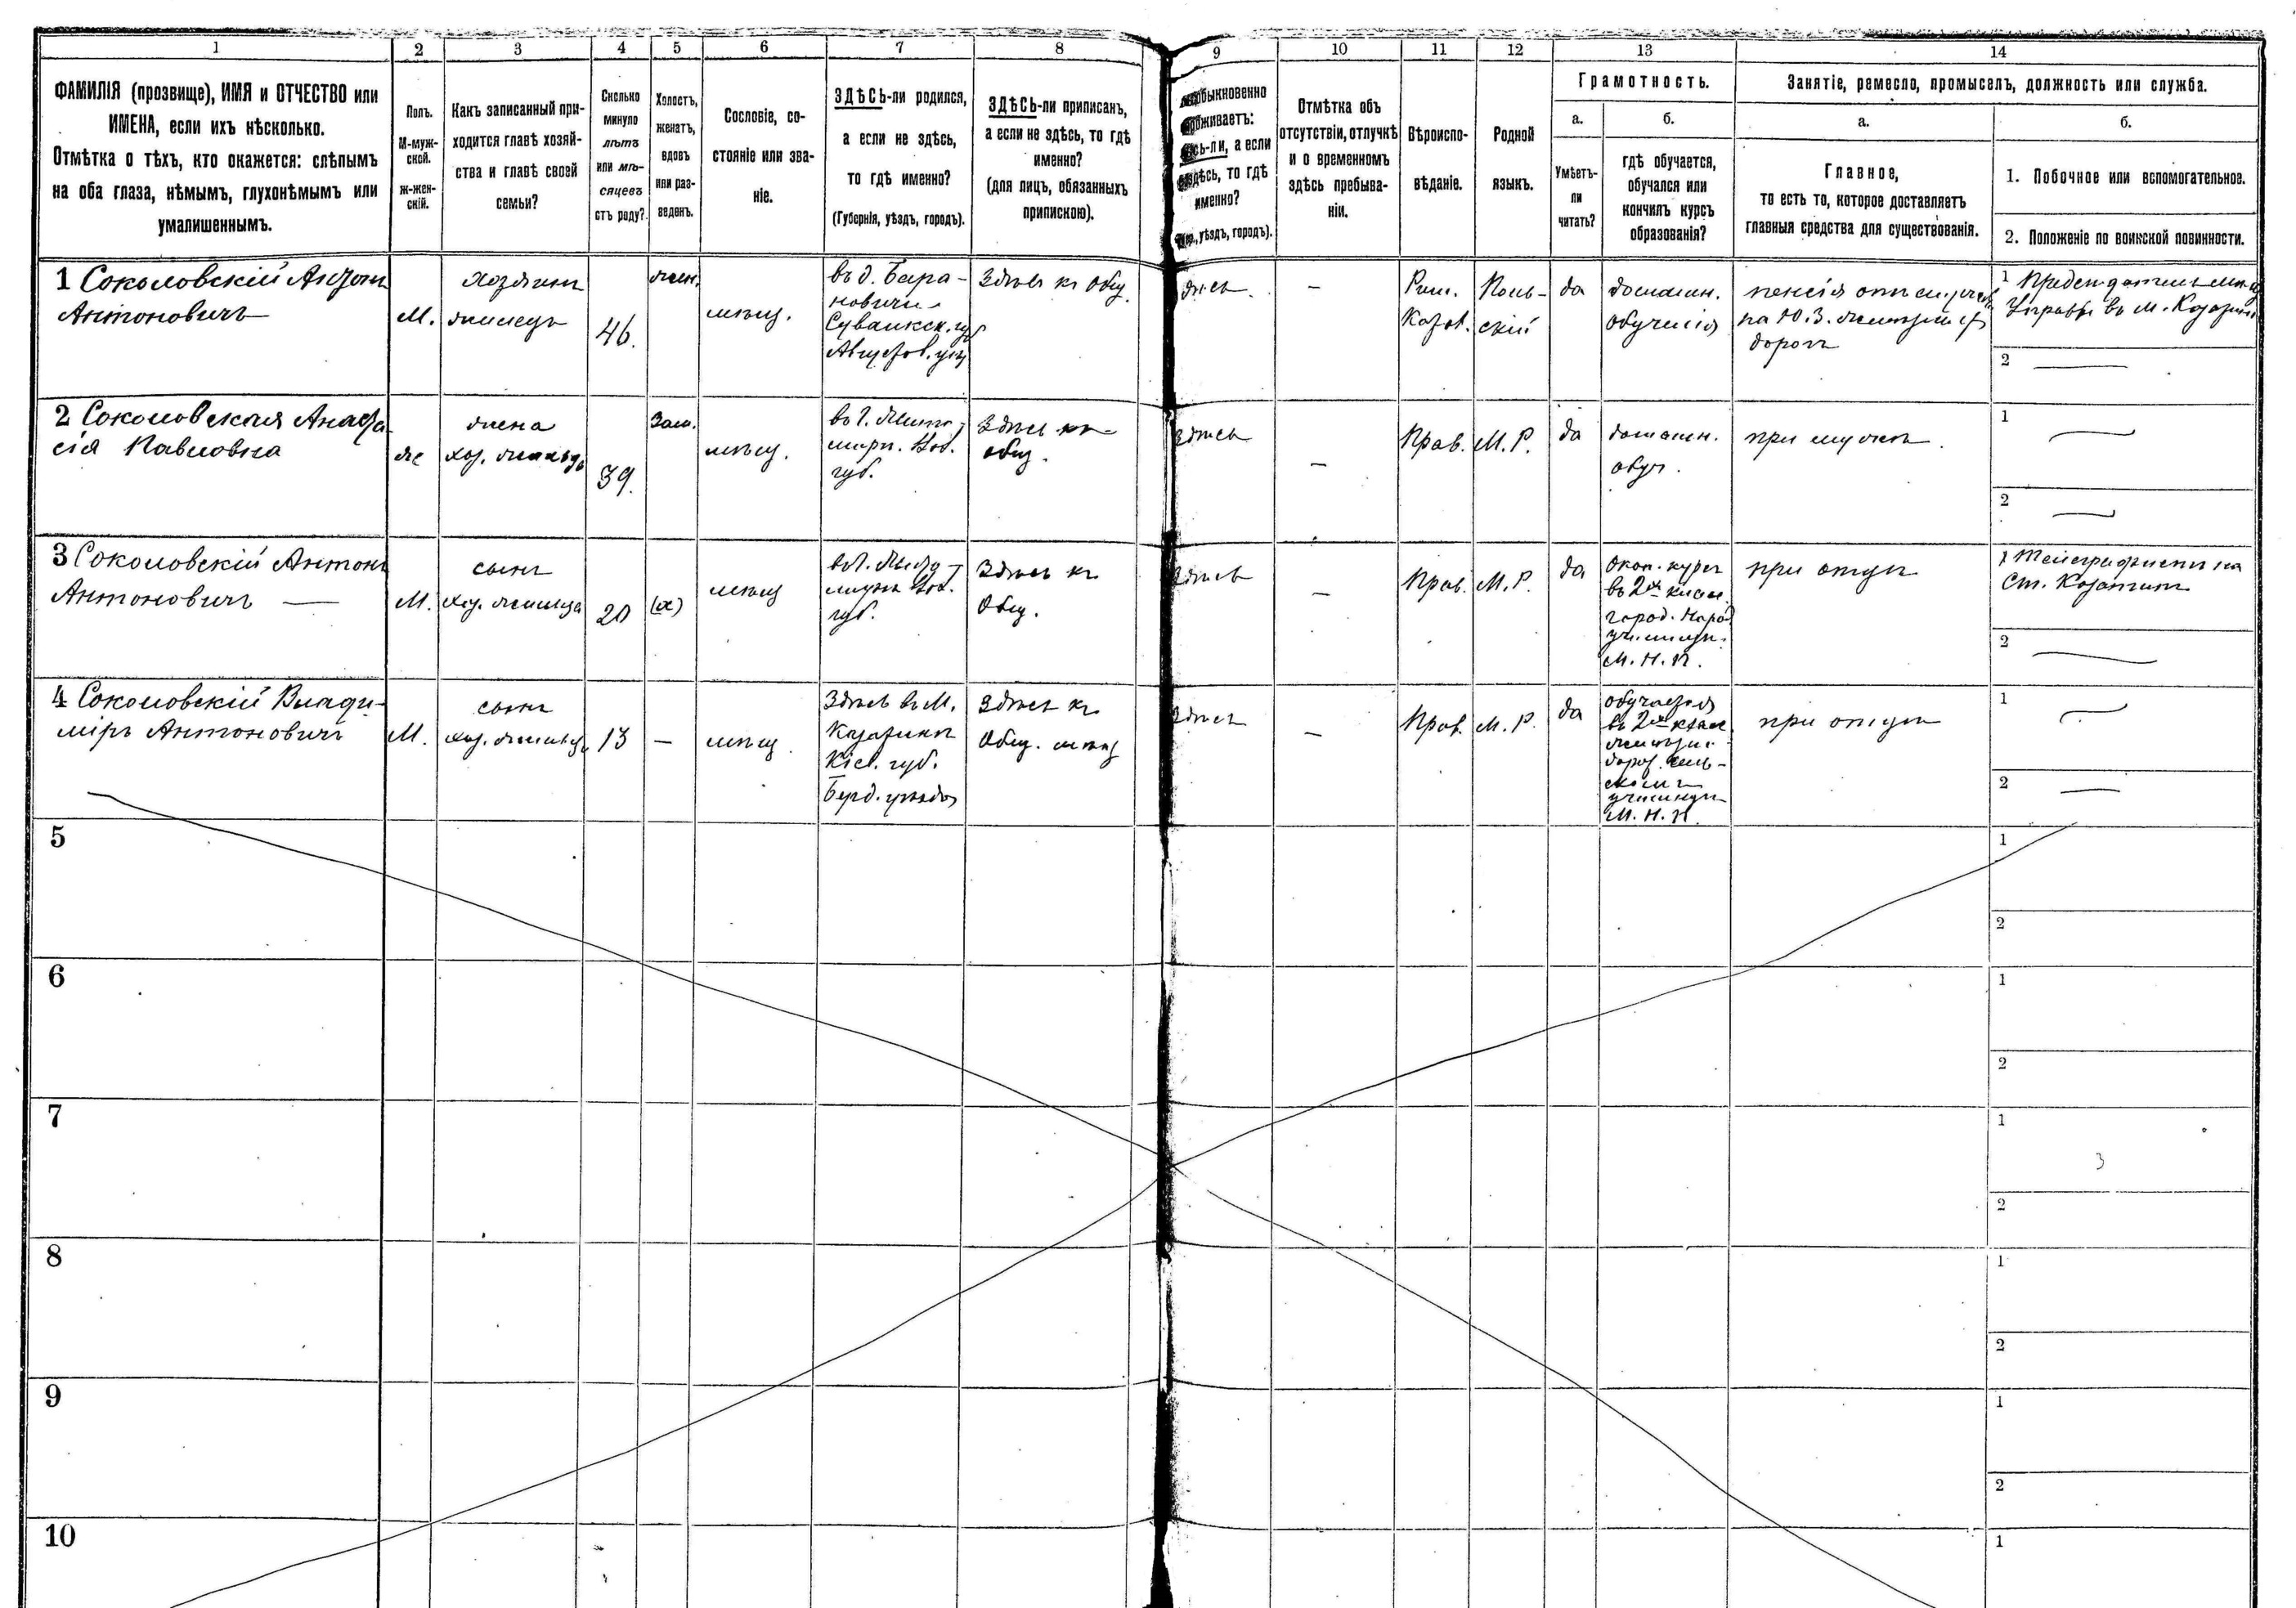 1 2 3 4 5 6 7 8 9 10 11 12 13 14
ФАМИЛІЯ (прозвище), ИМЯ и ОТЧЕСТВО или
ИМЕНА, если ихъ нѣсколько.
Отмѣтка о тѣхъ, кто окажется: слѣпымъ
на оба глаза, нѣмымъ, глухонѣмымъ или
умалишеннымъ.
Полъ.
М-муж-
ской.
ж-жен-
скій.
Какъ записанный при-
ходится главѣ хозяй-
ства и главѣ своей
семьи?
Сколько
минуло
лѣтъ
или мѣ-
сяцевъ
отъ роду?
Холостъ,
женатъ,
вдовъ
или раз-
веденъ.
Сословіе, со-
стояніе или зва-
ніе.
ЗДѢСЬ-ли родился,
а если не здѣсь,
то гдѣ именно?
(Губернія, уѣздъ, городъ).
ЗДѢСЬ-ли приписанъ,
а если не здѣсь, то гдѣ
именно?
(для лицъ, обязанныхъ
припискою).
а если
то гдѣ
именно?
уѣздъ, городъ).
Отмѣтка объ
отсутствіи, отлучкѣ
и о временномъ
здѣсь пребыва-
ніи.
Вѣроиспо-
вѣданіе.
Родной
языкъ.
Грамотность.
а.
Умѣетъ-
ли
читать?
б.
гдѣ обучается,
обучался или
кончилъ курсъ
образованія?
Занятіе, ремесло, промыселъ, должность или служба.
а.
Главное,
то есть то, которое доставляетъ
главныя средства для существованія.
б.
1. Побочное или вспомогательное.
2. Положеніе по воинской повинности.
1 Соколовскій Антонъ
Антоновичъ
М.
хозяинъ
жилецъ
46.
жен.
мѣщ.
въ д. Бара-
новичи
Сувалкск. гу
Августов. уѣз
Здѣсь къ общ.
—
Рим.
Катол.
Поль-
скій
да
домашн.
обученія
пенсія отъ
на Ю. З.
дорогѣ
1
Управы въ м. Козатинѣ
2 —
2 Соколовская Анаста-
сія Павловна
ж
жена
хоз. жильца
39.
Зам.
мѣщ.
въ г. Жито-
мирѣ. Вол.
губ.
Здѣсь къ
общ.
Здѣсь
—
Прав.
М. Р.
да
домашн.
обуч.
при мужѣ.
1 —
2 —
3 Соколовскій Антонъ
Антоновичъ —
М.
сынъ
хоз. жильца
20
(х)
мѣщ
въ г. Жито-
мирѣ Вол.
губ.
Здѣсь къ
Общ.
Здѣсь
—
Прав.
М. Р.
да
Окон. курсъ
въ 2хъ клас.
город. Народ
училищѣ.
М. Н. П.
при отцѣ
1 Телеграфистъ на
Ст. Козатинъ
2 —
4 Соколовскій Влади-
міръ Антоновичъ
М.
сынъ
хоз. жильца
13
—
мѣщ.
Здѣсь въ М.
Козатинѣ
Кіев. губ.
Берд. уѣзда
Здѣсь къ
Общ. мѣщ
Здѣсь
—
Прав.
М. Р.
да
обучается
въ 2хъ клас
желѣзно-
дорож. сель-
скомъ
училищѣ
М. Н. П.
при отцѣ
1 —
2 —
5
1
2
6
1
2
7
1
2
8
1
2
9
1
2
10
1